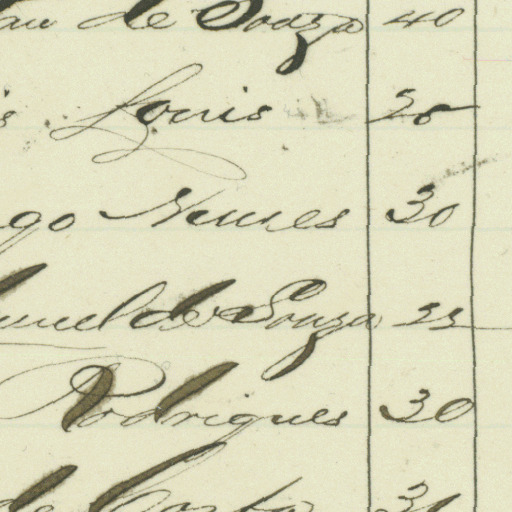 de Souza 40
Louis 28
go Nunes 30
uel de Souza 23
Rodrigues 30
de Costa 31